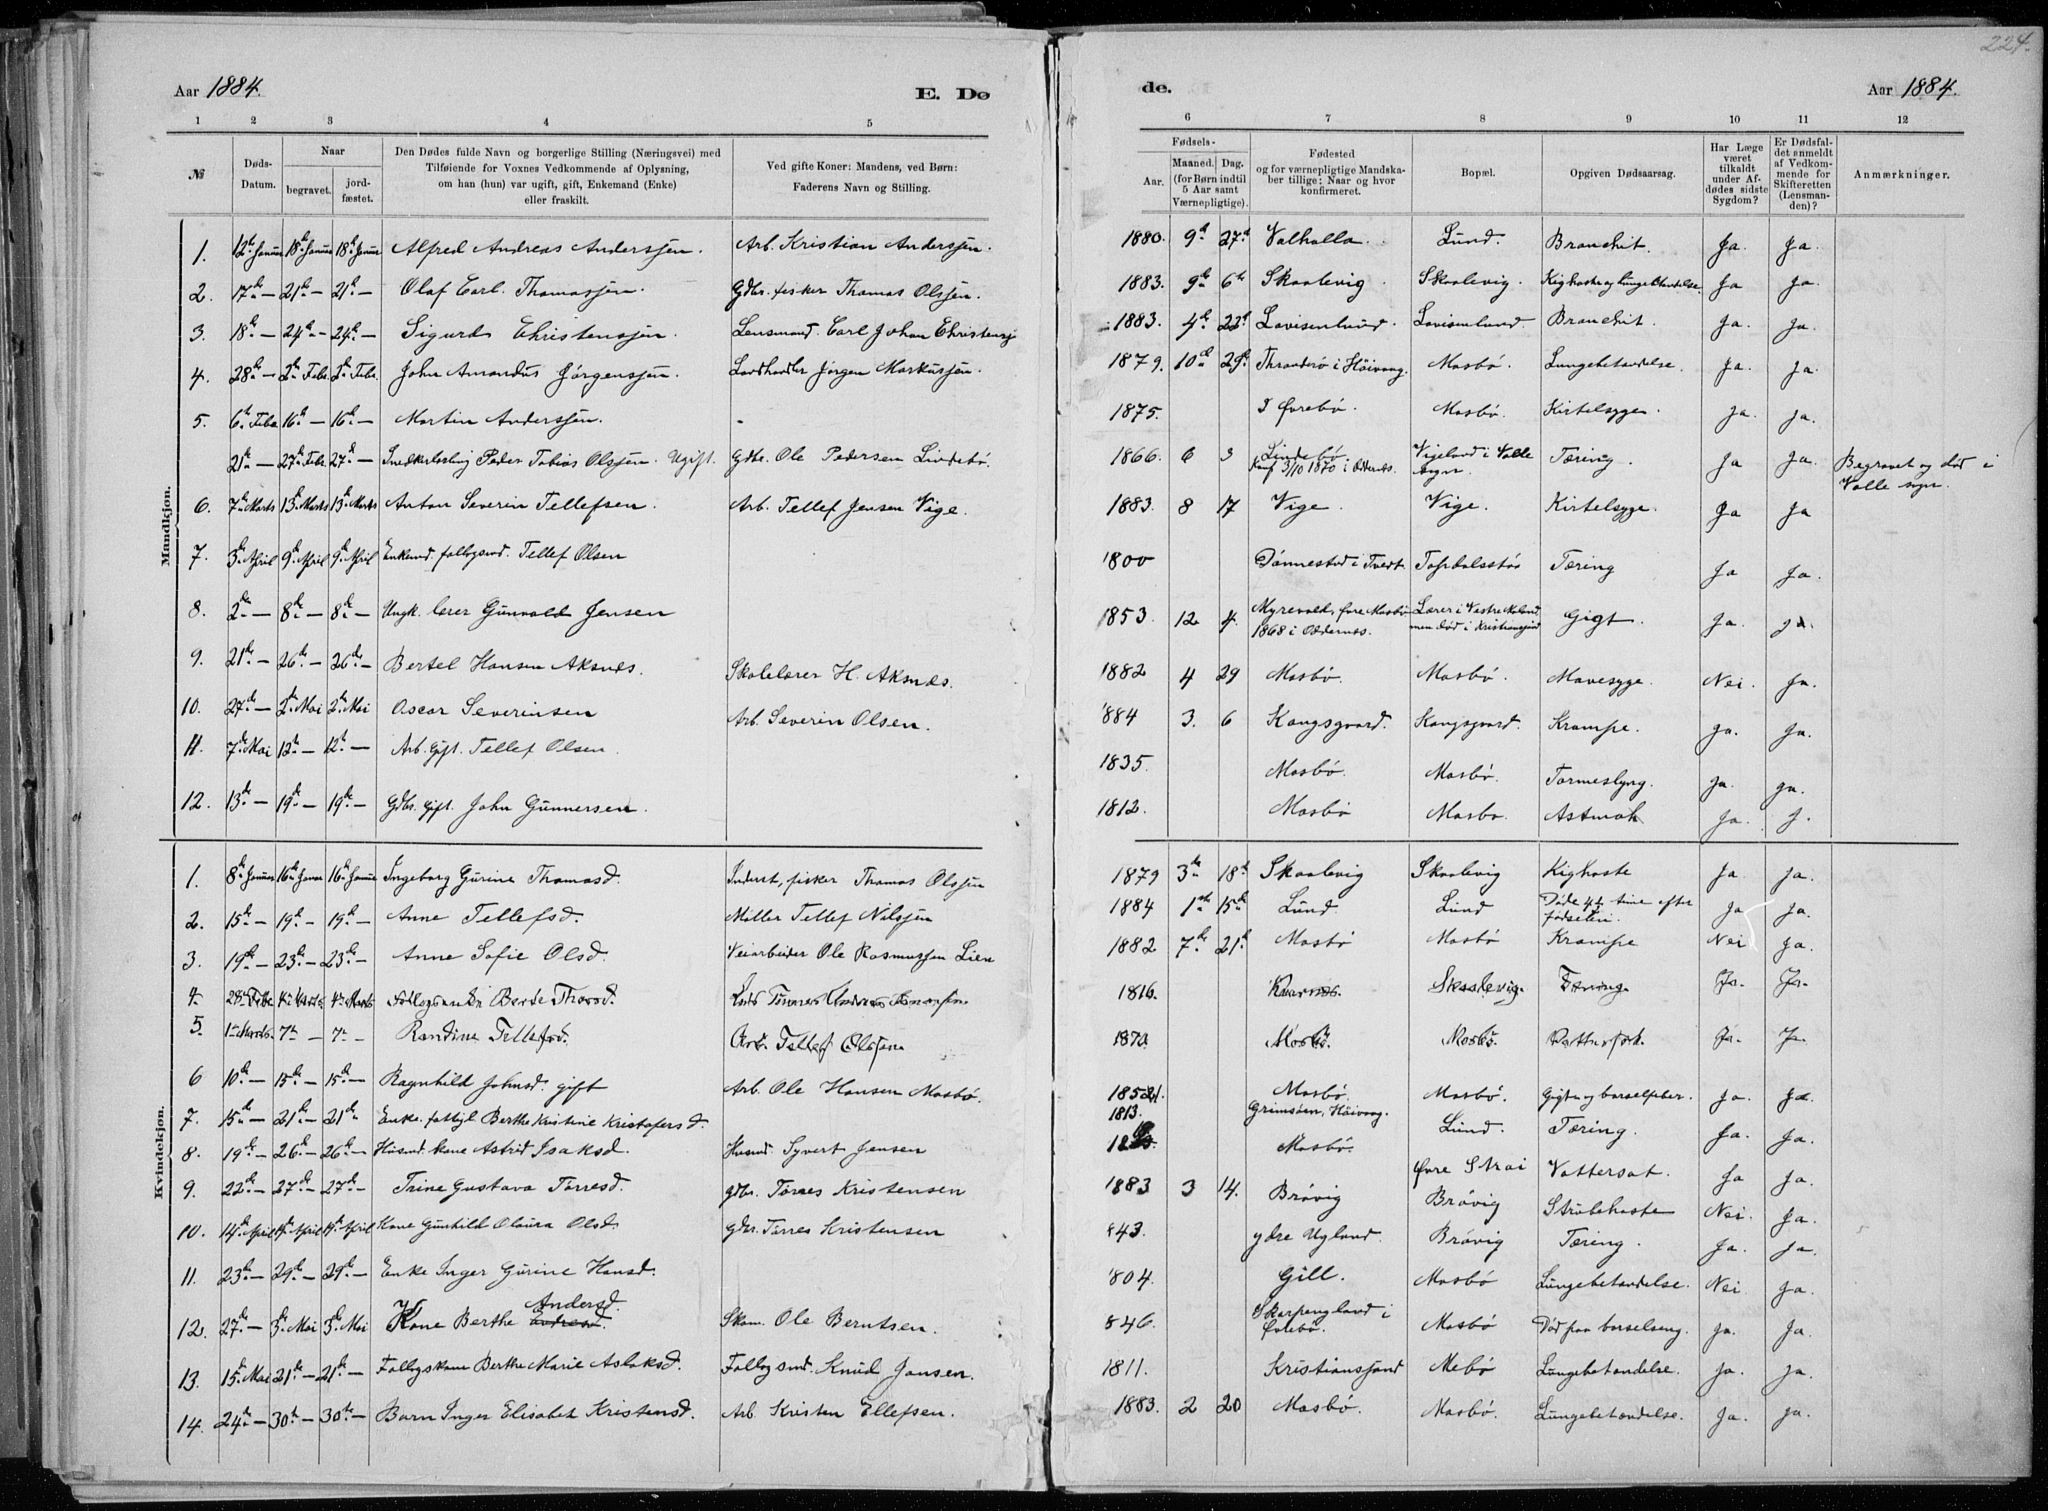 224.
Aar 1884. E. Dø de. Aar 1884.
1 2 3 4 5 6 7 8 9 10 11 12
№ Døds-Datum. Naar begravet. jordfæstet. Den Dødes fulde Navn og borgerlige Stilling (Næringsvei) med Tilføiende for Voxnes Vedkommende af Oplysning, om han (hun) var ugift, gift, Enkemand (Enke) eller fraskilt. Ved gifte Koner: Mandens, ved Børn: Faderens Navn og Stilling. Fødsels- Aar. Maaned. Dag. (for Børn indtil 5 Aar samt Værnepligtige). Fødested og for værnepligtige Mandskaber tillige: Naar og hvor konfirmeret. Bopæl. Opgiven Dødsaarsag. Har Læge været tilkaldt under Afdødes sidste Sygdom? Er Dødsfaldet anmeldt af Vedkommende for Skifteretten (Lensmanden)? Anmærkninger.
Mandkjøn.
1. 12te Januar 18de Januar 18de Januar Alfred Andreas Anderssen. Arb. Kristian Anderssen. 1880. 9de 27de Valhalla. Lund. Bronchit. Ja. Ja.
2. 17de — 21de — 21de — Olaf Carl Thomassen. Gdbr. fisker Thomas Olssen. 1883. 9de 6te Skaalevig. Skaalevig. Kighoste og lungebetændelse. Ja Ja.
3. 18de — 24de — 24de — Sigurd Christenssen. Lensmand Carl Johan Christenss 1883. 4de 22de Lovisenlund. Lovisenlund. Bronchit. Ja. Ja.
4. 28de — 2den Febr. 2den Febr. John Amandus Jørgenssen. Landhandler Jørgen Markussen. 1879. 10de 29de Tharaldsø i Høivaag. Mosbø. Lungebetændelse. Ja. Ja.
5. 6te Febr. 16de — 16de — Martin Anderssen. - 1875. I Øvrebø. Mosbø. Kirtelsyge. Ja. Ja.
21de — 27de Febr. 27de — Snedkerlærling Peder Tobias Olssen. Ugift. Gdbr. Ole Pedersen Lindebø. 1866. 6 3 Lindebø. Konf 3/10 1870 i Oddernes. Vigeland i Valle sogn. Tæring. Ja Ja. Begravet og død i Valle sogn.
6. 7de Marts 13de Marts 13de Marts Anton Severin Tellefsen. Arb. Tellef Jensen Vige. 1883. 8 17 Vige. Vige. Kirtelsyge. Ja Ja
7. 3de April 9de April 9de April Enkemd. føllogsmd. Tellef Olsen 1800 Dønnestad i Tveit Topdalsstøa Tæring Ja Ja.
8. 2den — 8de — 8de — Ungk. lærer Gunvald Jensen 1853. 12 4. Myrevold, Øvre Mosbø 1868 i Oddernes. Lærer i Vestre Moland men død i Kristianssand Gigt. Ja. Ja.
9. 21de — 26de — 26de — Bertel Hansen Aksnes. Skolelærer H. Aksnes. 1882 4 29 Mosbø. Mosbø. Mavesyge. Nei. Ja.
10. 27de — 2den Mai 2den Mai Oscar Severinsen Arb. Severin Olsen. 884 3. 6 Kongsgaard. Kongsgaard. Krampe. Ja. Ja.
11. 7de Mai 12te — 12te — Arb. Gift. Tellef Olsen. 1835. Mosbø. Mosbø. Tarmeslyng. Ja. Ja.
12. 13de — 19de — 19de — Gdbr. Gift. John Gunnersen. 1812. Mosbø Mosbø. Astmah Ja. J.
Kvindekjøn.
1. 8de Januar 16de Januar 16de Januar Ingeborg Gurine Thomasd. Inderst, fisker Thomas Olssen 1879 3de 18de Skaalevig Skaalevig Kighoste Ja Ja.
2. 15de — 19de — 19de — Anne Tellefsd. Møller Tellef Nilssen 1884 1ste 15de Lund. Lund Døde 4 1/2 time efter fødselen. Ja Ja.
3. 19de — 23de — 23de — Anne Sofie Olsd. Veiarbeider Ole Rasmussen Lien 1882 7de 21de Mosbø Mosbø Krampe Nei Ja.
4. 1816. Kvarnes. Skaalevig. Tæring. Ja. Ja.
5. 1ste Marts. 7de — 7de — Randine Tellefsd. Arb. Tellef Olssen. 1870. Mosbø. Mosbø. Ja. Ja.
6 10de — 15de — 15de — Ragnhild Johnsd. gift Arb. Ole Hansen Mosbø. Mosbø. Mosbø. Gigt og barselfeber. Ja. Ja.
7. 15de — 21de — 21de Enke. fattigl Berthe Kristine Kristofersd. 1813. Grimsøen, Høivaag. Lund. Tæring. Ja. Ja.
8. 19de — 26de — 26de — Husmd. kone Astrid Isaksd. Husmd Syvert Jensen Mosbø. Øvre Strai Vattersot. Ja Ja.
9. 22de — 27de — 27de — Trine Gustava Torresd. gdbr. Tørres Kristensen 1883 3 14. Brøvig Brøvig Strubehoste Nei. Ja.
10. 14de April 19de April 19de April Kone Gunhild Olaura Olsd gdbr. Tørres Kristensen 843. ydre Ugland. Brøvig Tæring. Ja. Ja.
11. 23de — 29de — 29de — Enke Inger Gurine Hansd. 804. Gill. Mosbø Lungebetændelse. Nei Ja.
12. 27de — 3de Mai 3de Mai Kone Berthe Andersd. Skom. Ole Berntsen. 846. Skarpengland i Øvrebø. Mosbø Død paa barselseng. Ja. Ja.
13. 15de Mai 21de — 21de — Føllogskone Berthe Marie Aslaksd. Føllogsmd. Knud Jansen. 1811. Kristianssand Mebø Lungebetændelse. Ja. Ja.
14. 24de — 30te — 30te — Barn Inger Elisabet Kristensd. Arb. Kristen Ellefsen. 1883. 2 20 Mosbø. Mosbø. Lungebetændelse. Ja. Ja.